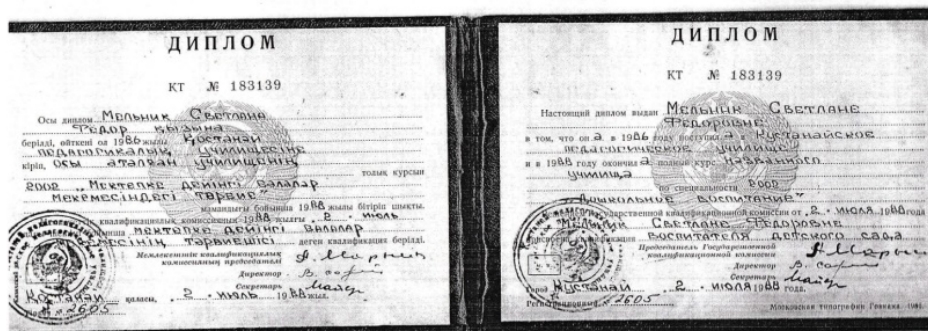 ДИПЛОМ
КТ № 183139
Осы диплом Мельник Светлана
Федор қызына
берілді, өйткені ол 1986 жылы Қостанай
педагогикалық училищесіне
кіріп, осы аталған училищенің
толық курсын
2002 „Мектепке дейінгі балалар
мекемесіндегі тәрбие"
мамандығы бойынша 1988 жылы бітіріп шықты.
квалификациялық комиссияның 1988 жылғы „2" июль
мектепке дейінгі балалар
мекемесінің тәрбиешісі деген квалификация берілді.
Мемлекеттік квалификациялық
комиссияның председателі
Директор
Секретарь
Қостанай қаласы, 2 июль 1988 жыл.
№ 2605
ДИПЛОМ
КТ № 183139
Настоящий диплом выдан Мельник Светлане
Федоровне
в том, что он а в 1986 году поступил а в Кустанайское
педагогическое училище
и в 1988 году окончил а полный курс названного
училища
по специальности 2002
„Дошкольное воспитание"
Государственной квалификационной комиссии от „2" июля 1988 года
Мельник Светлане Федоровне
присвоена квалификация воспитателя детского сада
Председатель Государственной
квалификационной комиссии
Директор
Секретарь
Город Кустанай 2 июля 1988 года.
Регистрационный № 2605
Московская типография Гознака. 1981.